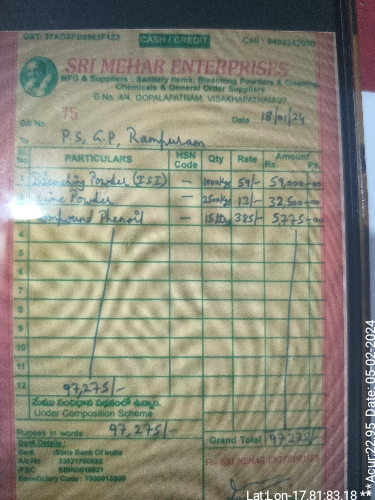 CASH / CREDIT
SRI MEHAR ENTERPRISES
MFG & Suppliers : Sanitary Items, Bleaching Powders & Cleaning
Chemicals & General Order Suppliers
D.No. 4/4, GOPALAPATNAM, VISAKHAPATNAM-27
Bill No 75 Date 18/01/24
To P.S, G.P, Rampuram
No. PARTICULARS HSN Code Qty Rate Amount Rs. Ps.
Bleaching Powder (ISI) — 1000kg 59/- 59,000-00
Lime Powder — 2500kg 13/- 32,500-00
Compound Phenoil — 15 385/- 5775-00
4
5
6
7
8
9
10
11
12 97,275/-
Under Composition Scheme
Rupees in words 97,275/- Grand Total 97275/-
Bank Details :
Bank : State Bank Of India
A/c No
IFSC
Beneficiary Code :
For SRI MEHAR ENTERPRISES
Lat Lon-17.81:83.18 ** Acur:22.95 Date: 05-02-2024